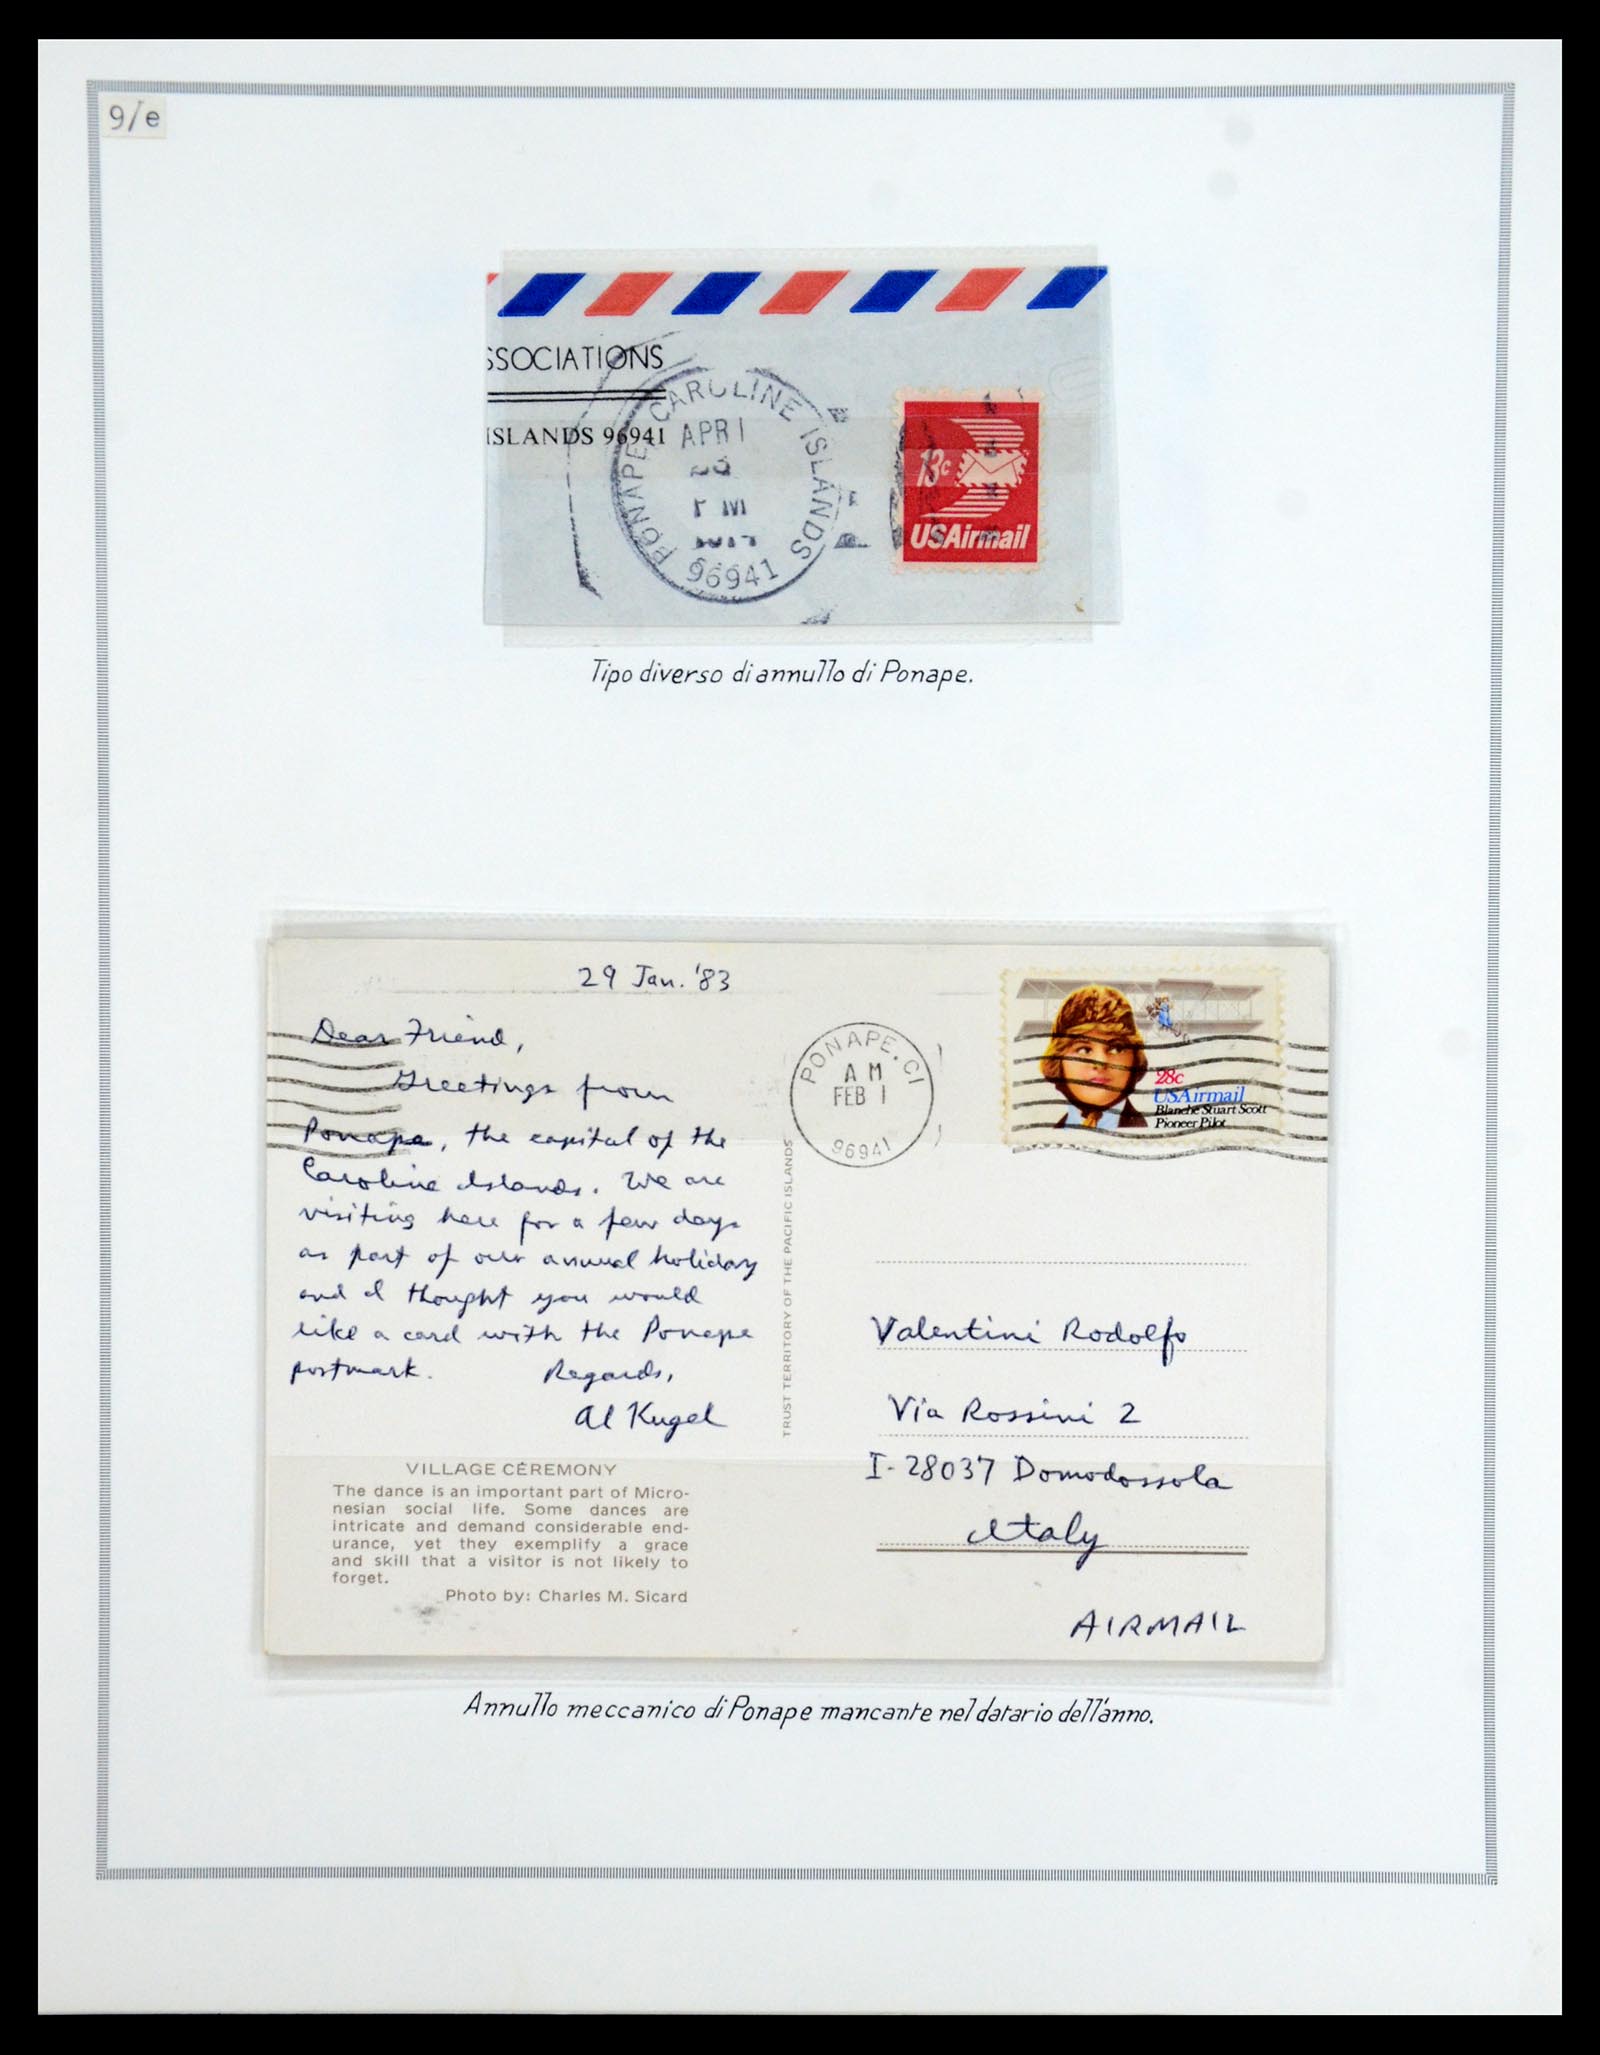 9/e
SSOCIATIONS
ISLANDS 96941
PONAPE CAROLINE ISLANDS
APR 1
PM
96941
13c
USAirmail
Tipo diverso di annullo di Ponape.
29 Jan. '83
Dear Friend,
Greetings from
Ponape, the capital of the
Caroline Islands. We are
visiting here for a few days
as part of our annual holiday
and I thought you would
like a card with the Ponape
postmark. Regards,
Al Kugel
VILLAGE CEREMONY
The dance is an important part of Micro-
nesian social life. Some dances are
intricate and demand considerable end-
urance, yet they exemplify a grace
and skill that a visitor is not likely to
forget.
Photo by: Charles M. Sicard
TRUST TERRITORY OF THE PACIFIC ISLANDS
PONAPE, CI
AM
FEB 1
96941
28c
USAirmail
Blanche Stuart Scott
Pioneer Pilot
Valentini Rodolfo
Via Rossini 2
I-28037 Domodossola
Italy
AIRMAIL
Annullo meccanico di Ponape mancante nel datario dell'anno.